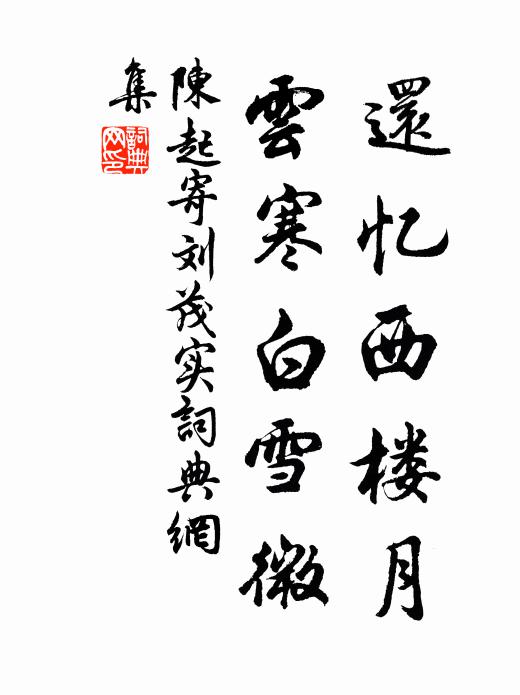 還忆西楼月
雲寒白雪微
陳起寄刘茂实詞典網
集
詞典
网印